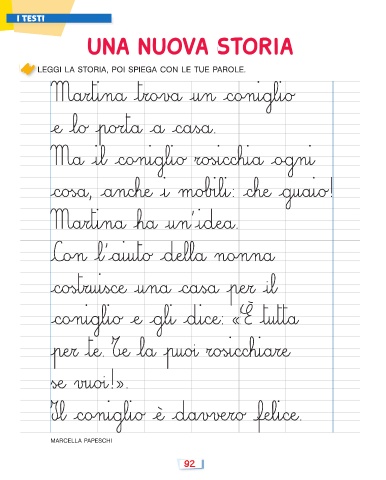 I TESTI
UNA NUOVA STORIA
LEGGI LA STORIA, POI SPIEGA CON LE TUE PAROLE.
Martina trova un coniglio
e lo porta a casa.
Ma il coniglio rosicchia ogni
cosa, anche i mobili: che guaio!
Martina ha un'idea.
Con l'aiuto della nonna
costruisce una casa per il
coniglio e gli dice: «È tutta
per te. Te la puoi rosicchiare
se vuoi!».
Il coniglio è davvero felice.
MARCELLA PAPESCHI
92